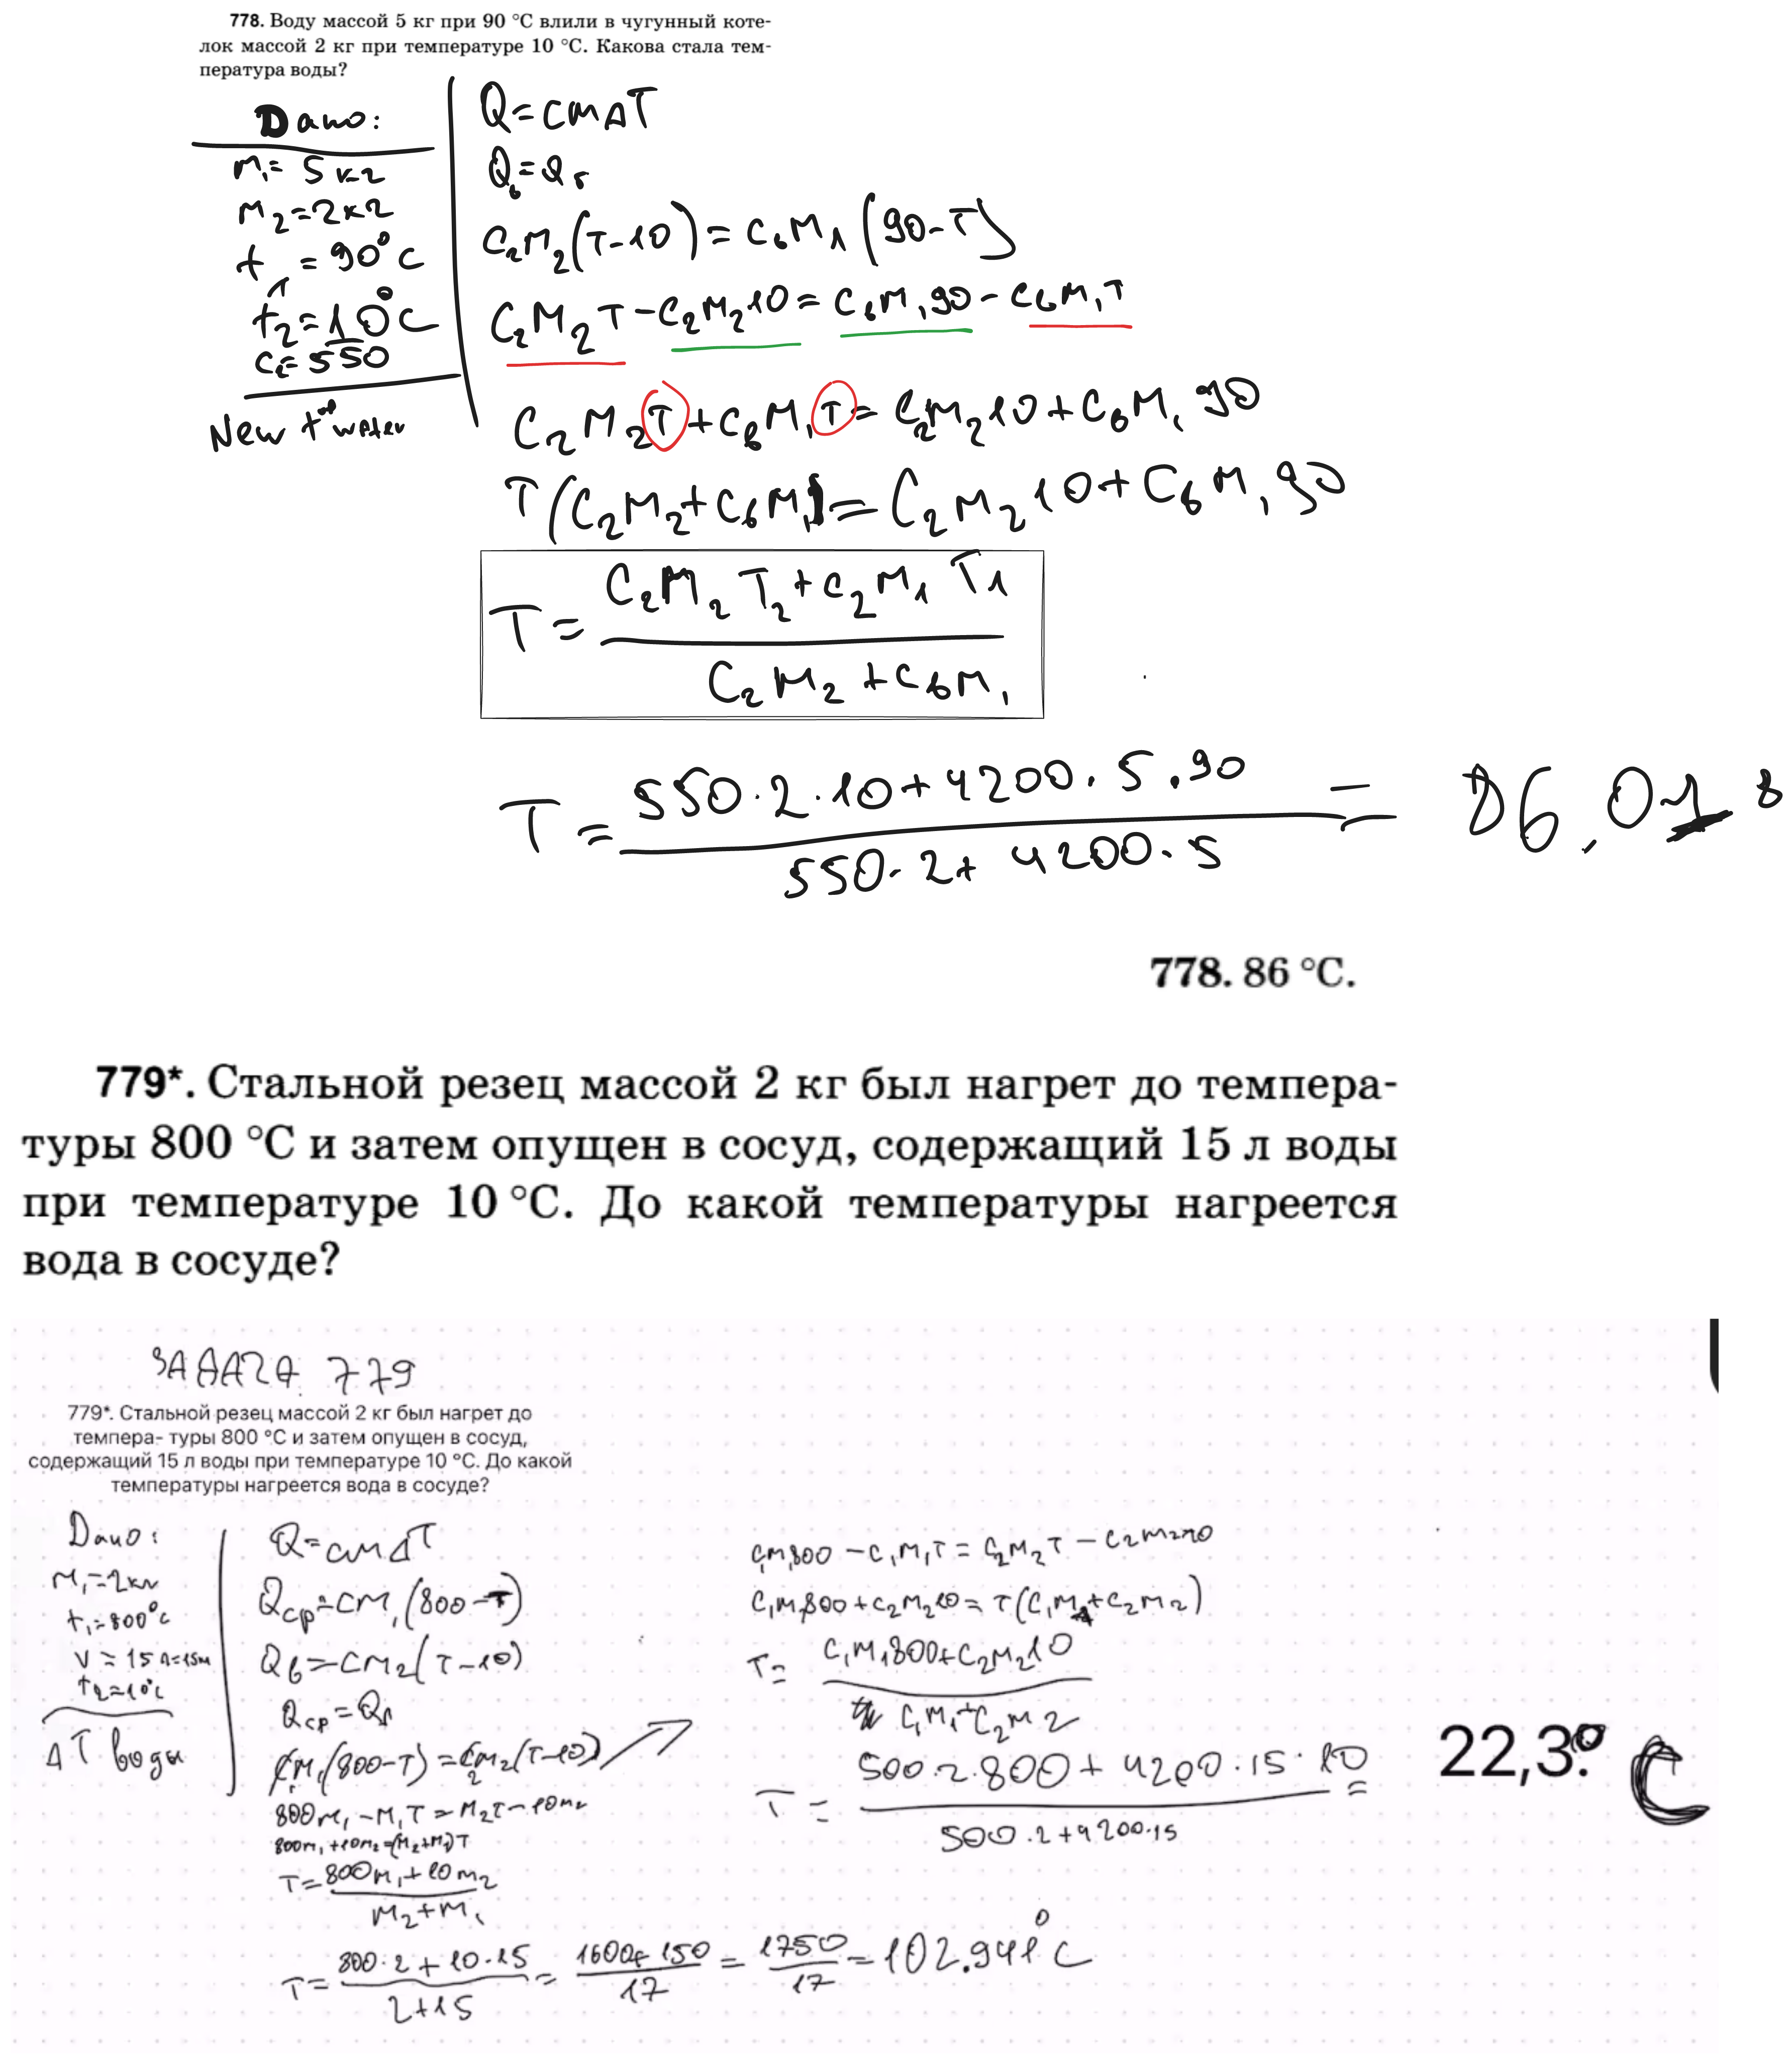 778. Воду массой 5 кг при 90 °С влили в чугунный коте-
лок массой 2 кг при температуре 10 °С. Какова стала тем-
пература воды?
Дано:
m₁= 5 кг
m₂=2кг
t₁ = 90°C
t₂=10°C
c₂=550
New t° water
Q=cm∆T
Qв=Qг
c₂m₂(T-10)=cвm₁(90-T)
c₂m₂T-c₂m₂10=cвm₁90-cвm₁T
c₂m₂T+cвm₁T=c₂m₂10+cвm₁90
T(c₂m₂+cвm₁)=c₂m₂10+cвm₁90
T= (c₂m₂T₂+c₂m₁T₁)/(c₂m₂+cвm₁)
T= (550·2·10+4200·5·90)/(550·2+4200·5) = 86.018
778. 86 °С.
779*. Стальной резец массой 2 кг был нагрет до темпера-
туры 800 °С и затем опущен в сосуд, содержащий 15 л воды
при температуре 10 °С. До какой температуры нагреется
вода в сосуде?
ЗАДАЧА 779
779*. Стальной резец массой 2 кг был нагрет до
темпера- туры 800 °С и затем опущен в сосуд,
содержащий 15 л воды при температуре 10 °С. До какой
температуры нагреется вода в сосуде?
Дано:
m₁=2кг
t₁=800°c
V=15л=15
t₂=10°c
∆T воды
Q=cm∆T
Qср=cm₁(800-T)
Qв=cm₂(T-10)
Qср=Qв
c₁m₁(800-T)=c₂m₂(T-10)
800m₁-m₁T=m₂T-10m₂
800m₁+10m₂=(m₂+m₁)T
T= (800m₁+10m₂)/(m₂+m₁)
T= (800·2+10·15)/(2+15) = (1600+150)/17 = 1750/17 = 102.941°C
c₁m₁800-c₁m₁T=c₂m₂T-c₂m₂10
c₁m₁800+c₂m₂10=T(c₁m₁+c₂m₂)
T= (c₁m₁800+c₂m₂10)/(c₁m₁+c₂m₂)
T= (500·2·800+4200·15·10)/(500·2+4200·15) = 22,3° C